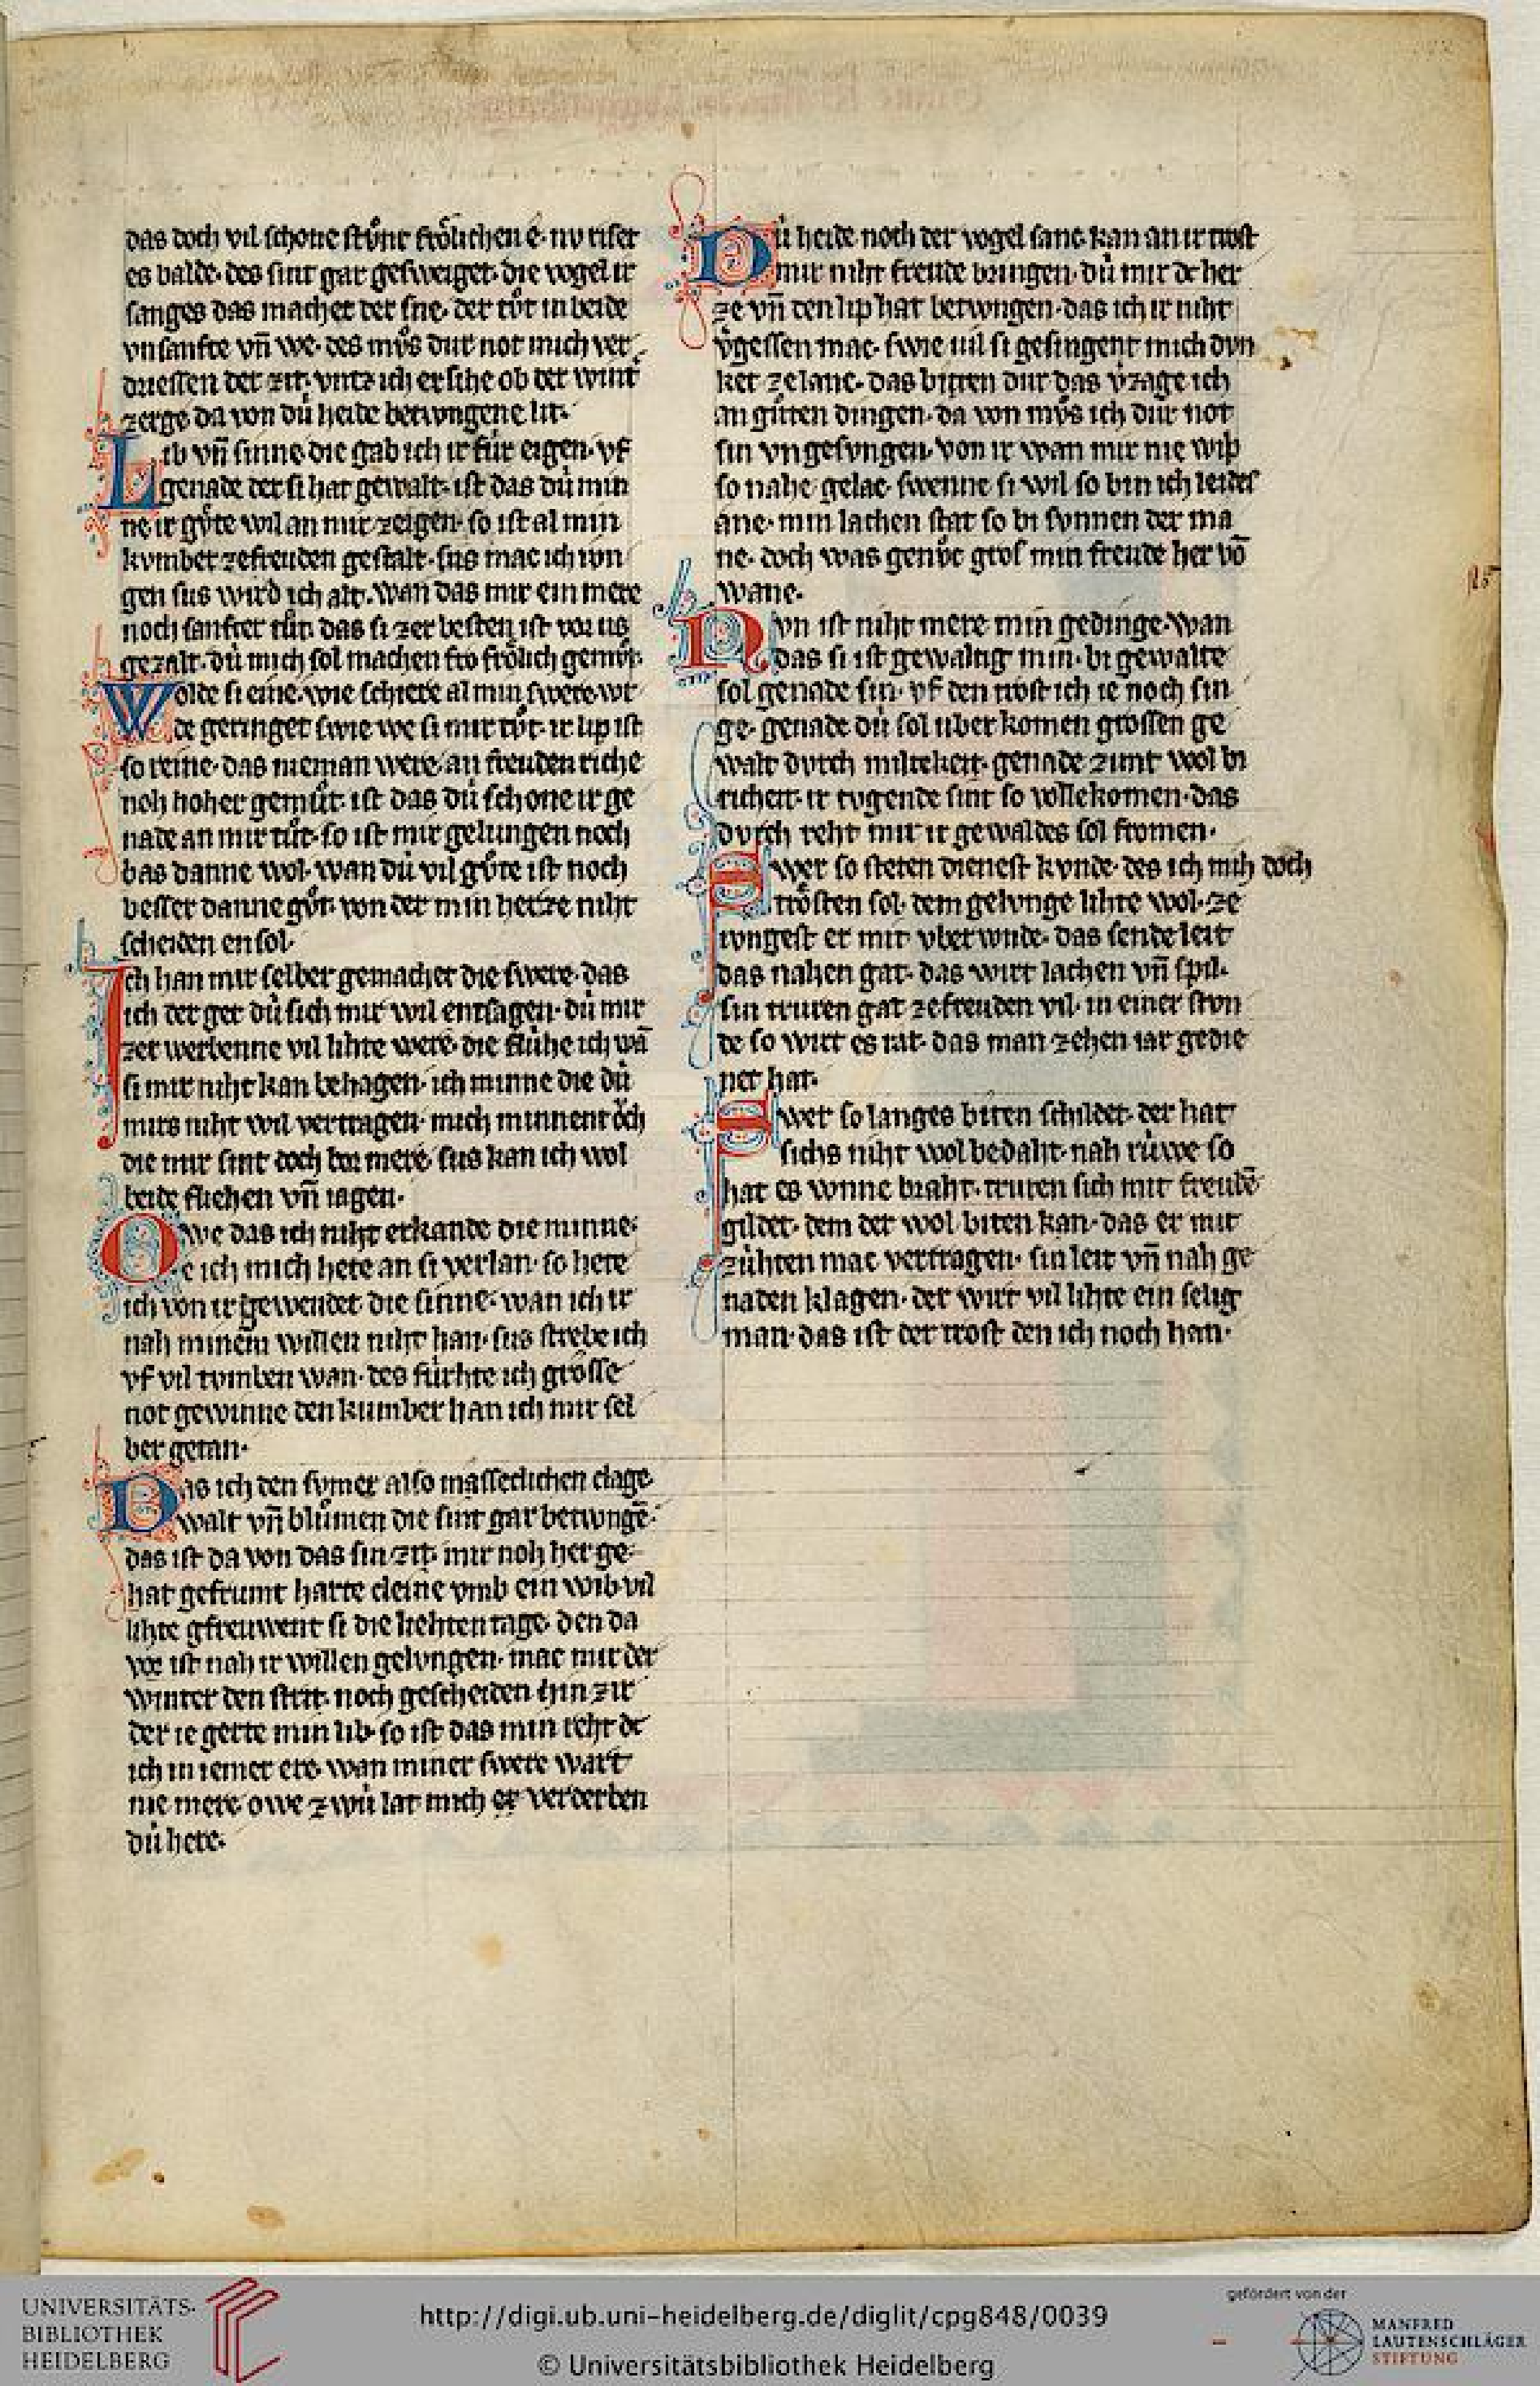 das doch vil schone stuͦnt froͤlichen e· nv riset
es balde· des sint gar gesweiget· die vogel ir
sanges das machet der sne· der tuͦt in beide
vnsanfte vn̄ we· des muͦs dur not mich ver
driessen der zit· vntz ich ersihe ob der wint͛
zerge da von dú heide betwngene lit·
Lib vn̄ sinne die gab ich ir fúr eigen· vf
genade der si hat gewalt· ist das dú min
ne ir guͤte wil an mir zeigen· so ist al min
kvmber ze freuden gestalt· sus mac ich ivn
gen sus wird ich alt· wan das mir ein mere
noch sanfter tuͦt· das si zer besten ist vor us
gezalt· dú mich sol machen fro froͤlich gemuͦt·
Wolde si eine· wie schiere al min swere wr
de geringet swie we si mir tuͦt· ir lip ist
so reine· das nieman were an freuden riche
noh hoher gemuͦt· ist das dú schone ir ge
nade an mir tuͦt· so ist mir gelungen noch
bas danne wol· wan dú vil guͤte ist noch
besser danne guͦt· von der min herze niht
scheiden en sol·
Ich han mir selber gemachet die swere· das
ich der ger dú sich mir wil entsagen· dú mir
zer werbenne vil lihte were· die flúhe ich wā
si mir niht kan behagen· ich minne die dú
mirs niht wil vertragen· mich minnent oͮch
die mir sint doch bor mere· sus kan ich wol
beide fliehen vn̄ iagen·
Owe das ich niht erkande die minne·
e ich mich hete an si verlan· so hete
ich von ir gewendet die sinne· wan ich ir
nah minem willen niht han· sus strebe ich
vf vil tvmben wan· des fúrhte ich grosse
not gewinne den kumber han ich mir sel
ber getan·
Das ich den svmer also masseclichen clage·
walt vn̄ bluͦmen die sint gar betwngē·
das ist da von das sin zit· mir noh her ge
hat gefrumt harte cleine vmb ein wib· vil
lihte gfreuwent si die liehten tage· den da
vor ist nah ir willen gelvngen· mac mir der
winter den strit· noch gescheiden hin zir
der ie gerte min lib· so ist das min reht dc
ich in iemer ere· wan miner swere wart
nie mere· owe zwú lat mich er verderben
dú here·
Dú heide noch der vogel sanc· kan an ir trost
mir niht freude bringen· dú mir dc her
ze vn̄ den lip hat betwngen· das ich ir niht
v͛gessen mac· swie vil si gesingent mich dvn
ket ze lanc· das biten dur das v͛zage ich
an guͦten dingen· da von muͦs ich dur not
sin vngesvngen· von ir wan mir nie wip
so nahe gelac· swenne si wil so bin ich leides
ane· min lachen stat so bi svnnen der ma
ne· doch was genuͦc gros min freude her vō
wane·
Nvn ist niht mere min gedinge· wan
das si ist gewaltig min· bi gewalte
sol genade sin· vf den trost ich ie noch sin
ge· genade dú sol uber komen grossen ge
walt dvrch miltekeit· genade zimt wol bi
richeit· ir tvgende sint so vollekomen· das
dvrch reht mir ir gewaldes sol fromen·
Swer so steten dienest kvnde· des ich mih doch
troͤsten sol· dem gelvnge lihte wol· ze
ivngest er mit vberwnde· das sende leit
das nahen gat· das wirt lachen vn̄ spil·
sin truren gat ze freuden vil· in einer stvn
de so wirt es rat· das man zehen iar gedie
net hat·
Swer so langes biten schildet· der hat
sichs niht wol bedaht· nah rúwe so
hat es wnne braht· truren sich mit freudē
gildet· dem der wol biten kan· das er mit
zúhten mac vertragen· sin leit vn̄ nah ge
naden klagen· der wirt vil lihte ein selig
man· das ist der trost den ich noch han·
UNIVERSITÄTS-
BIBLIOTHEK
HEIDELBERG
http://digi.ub.uni-heidelberg.de/diglit/cpg848/0039
© Universitätsbibliothek Heidelberg
gefördert von der
MANFRED
LAUTENSCHLÄGER
STIFTUNG